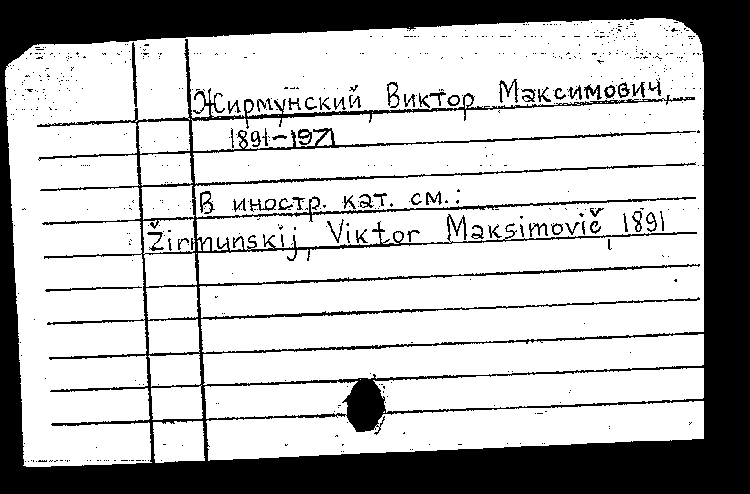 Жирмунский, Виктор Максимович,
1891-1971
В иностр. кат. см.:
Žirmunskij, Viktor Maksimovič, 1891